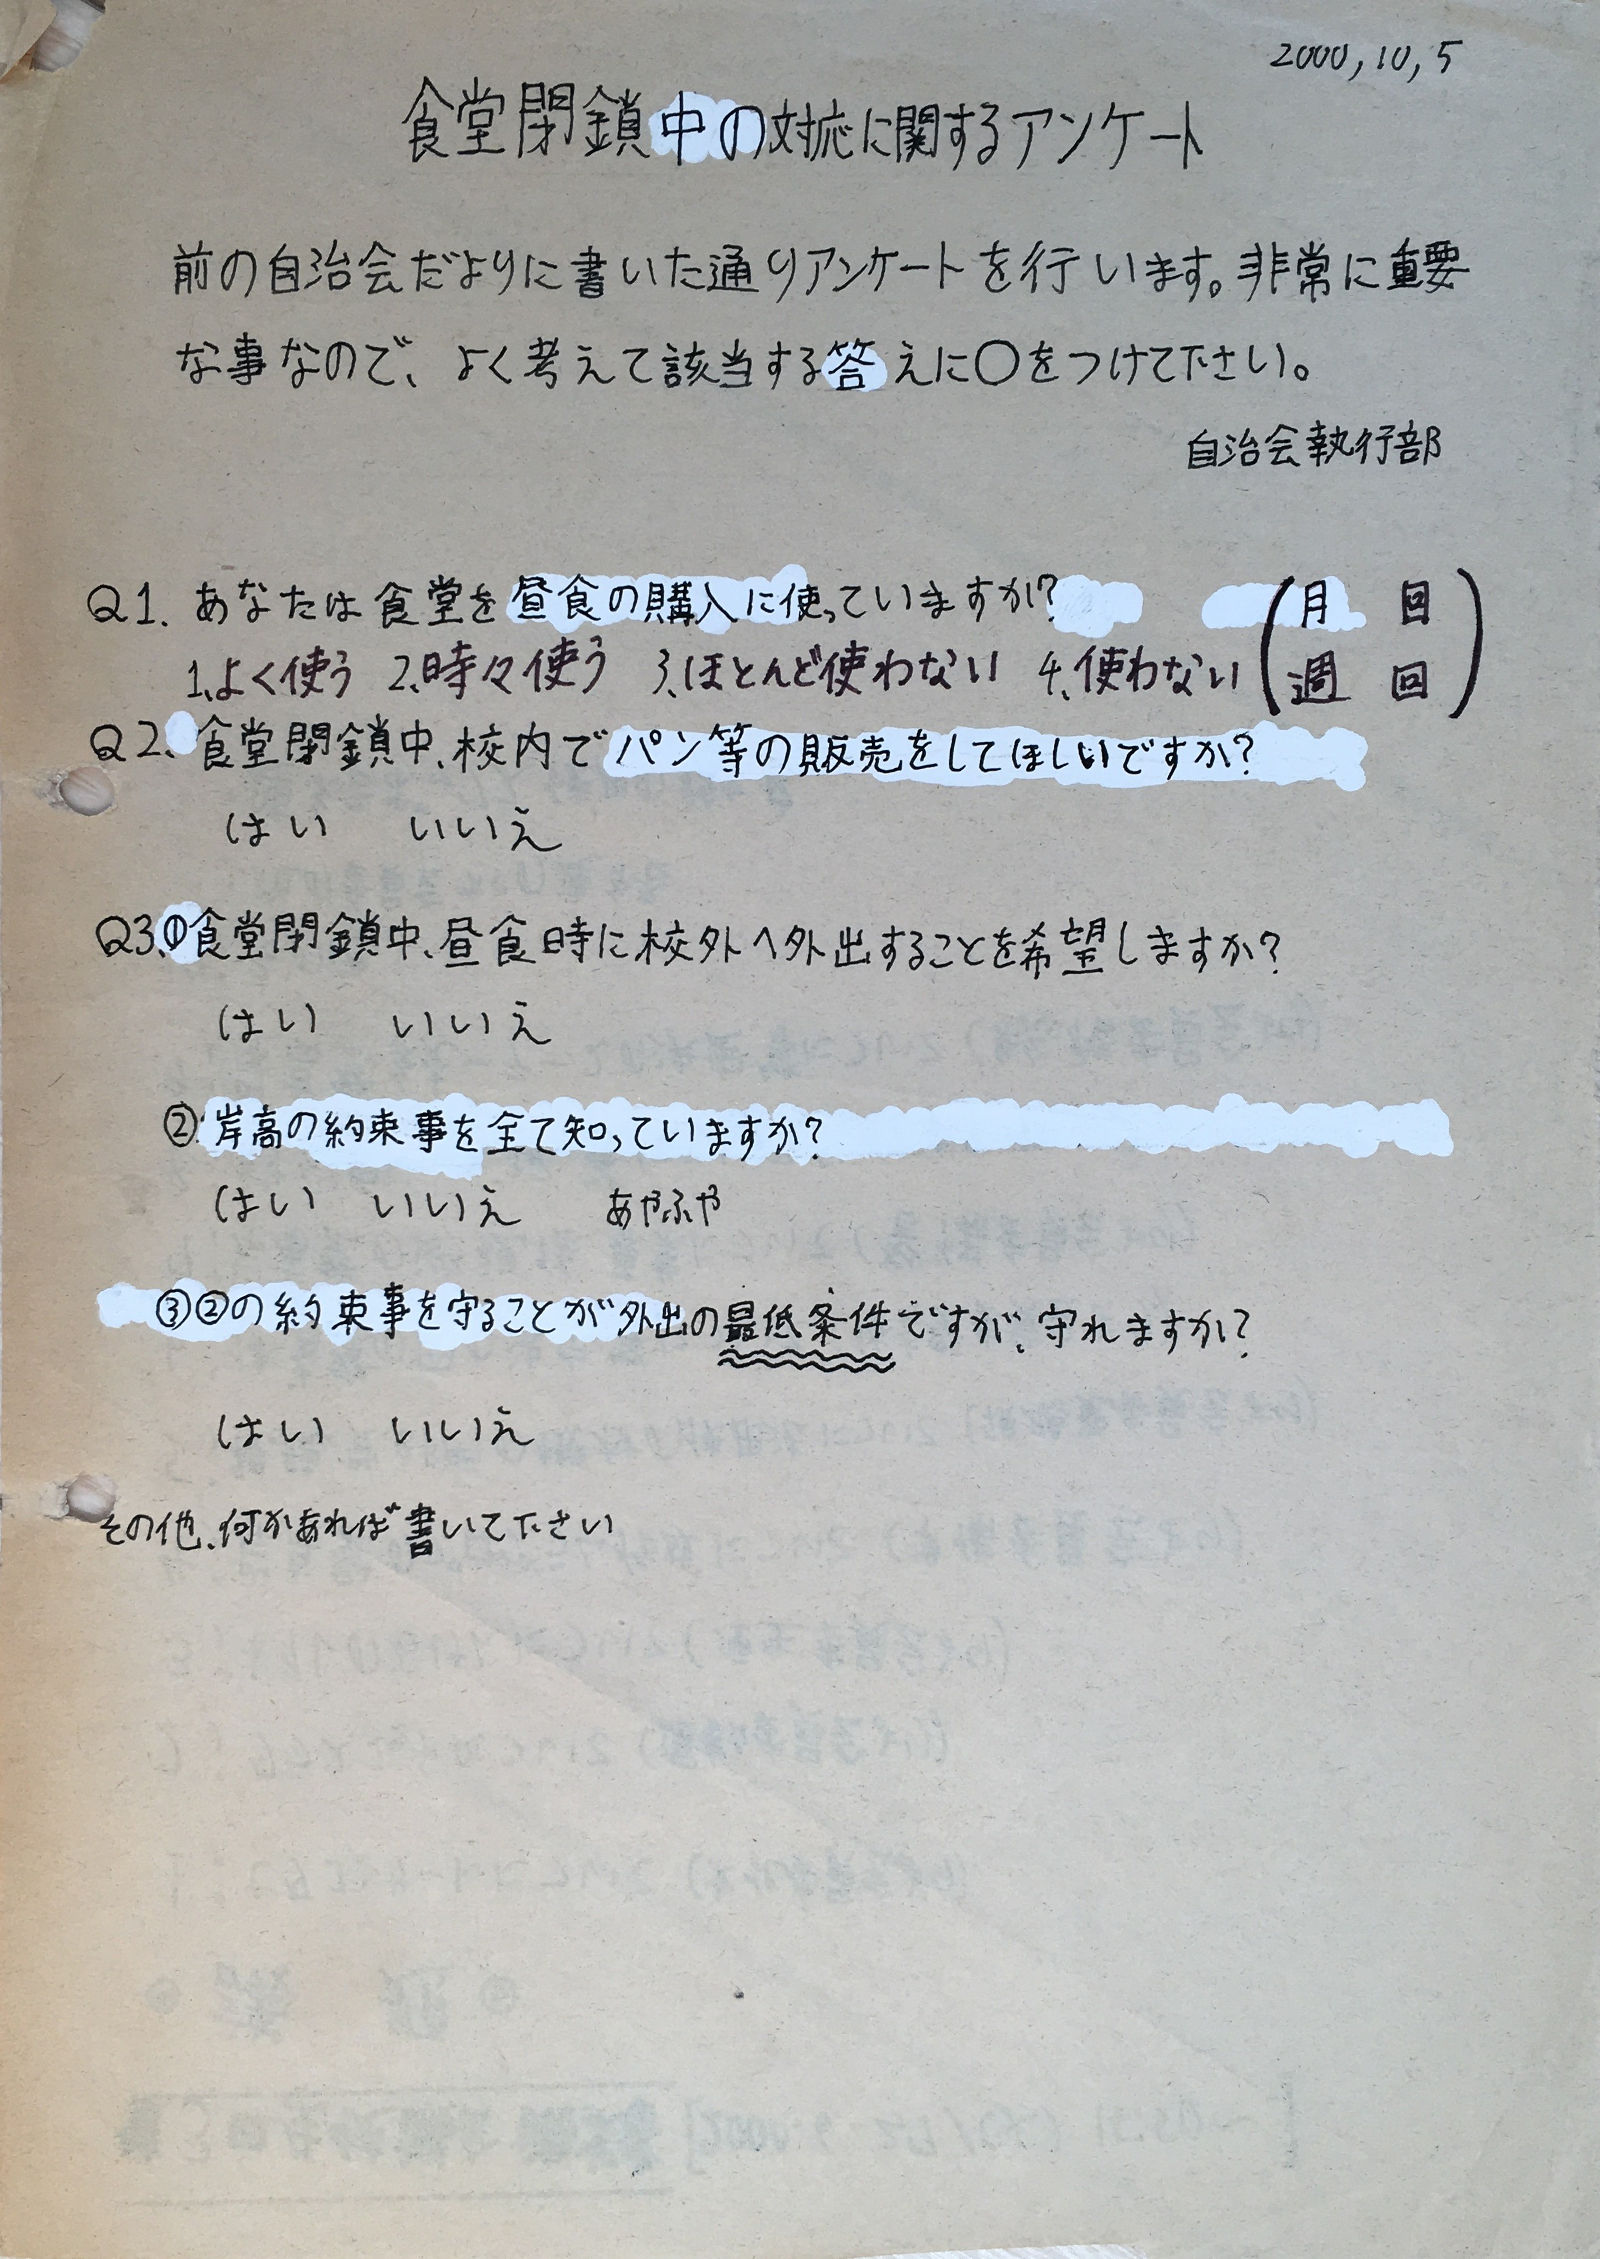 2000,10,5
食堂閉鎖中の対応に関するアンケート
前の自治会だよりに書いた通りアンケートを行います。非常に重要
な事なので、よく考えて該当する答えに○をつけて下さい。
自治会執行部
Q1、あなたは食堂を昼食の購入に使っていますか?
(月 回
1、よく使う 2、時々使う 3、ほとんど使わない 4、使わない
週 回)
Q2、食堂閉鎖中、校内でパン等の販売をしてほしいですか?
はい いいえ
Q3、①食堂閉鎖中、昼食時に校外へ外出することを希望しますか?
はい いいえ
②岸高の約束事を全て知っていますか?
はい いいえ あやふや
③②の約束事を守ることが外出の最低条件ですが、守れますか?
はい いいえ
その他、何かあれば書いて下さい